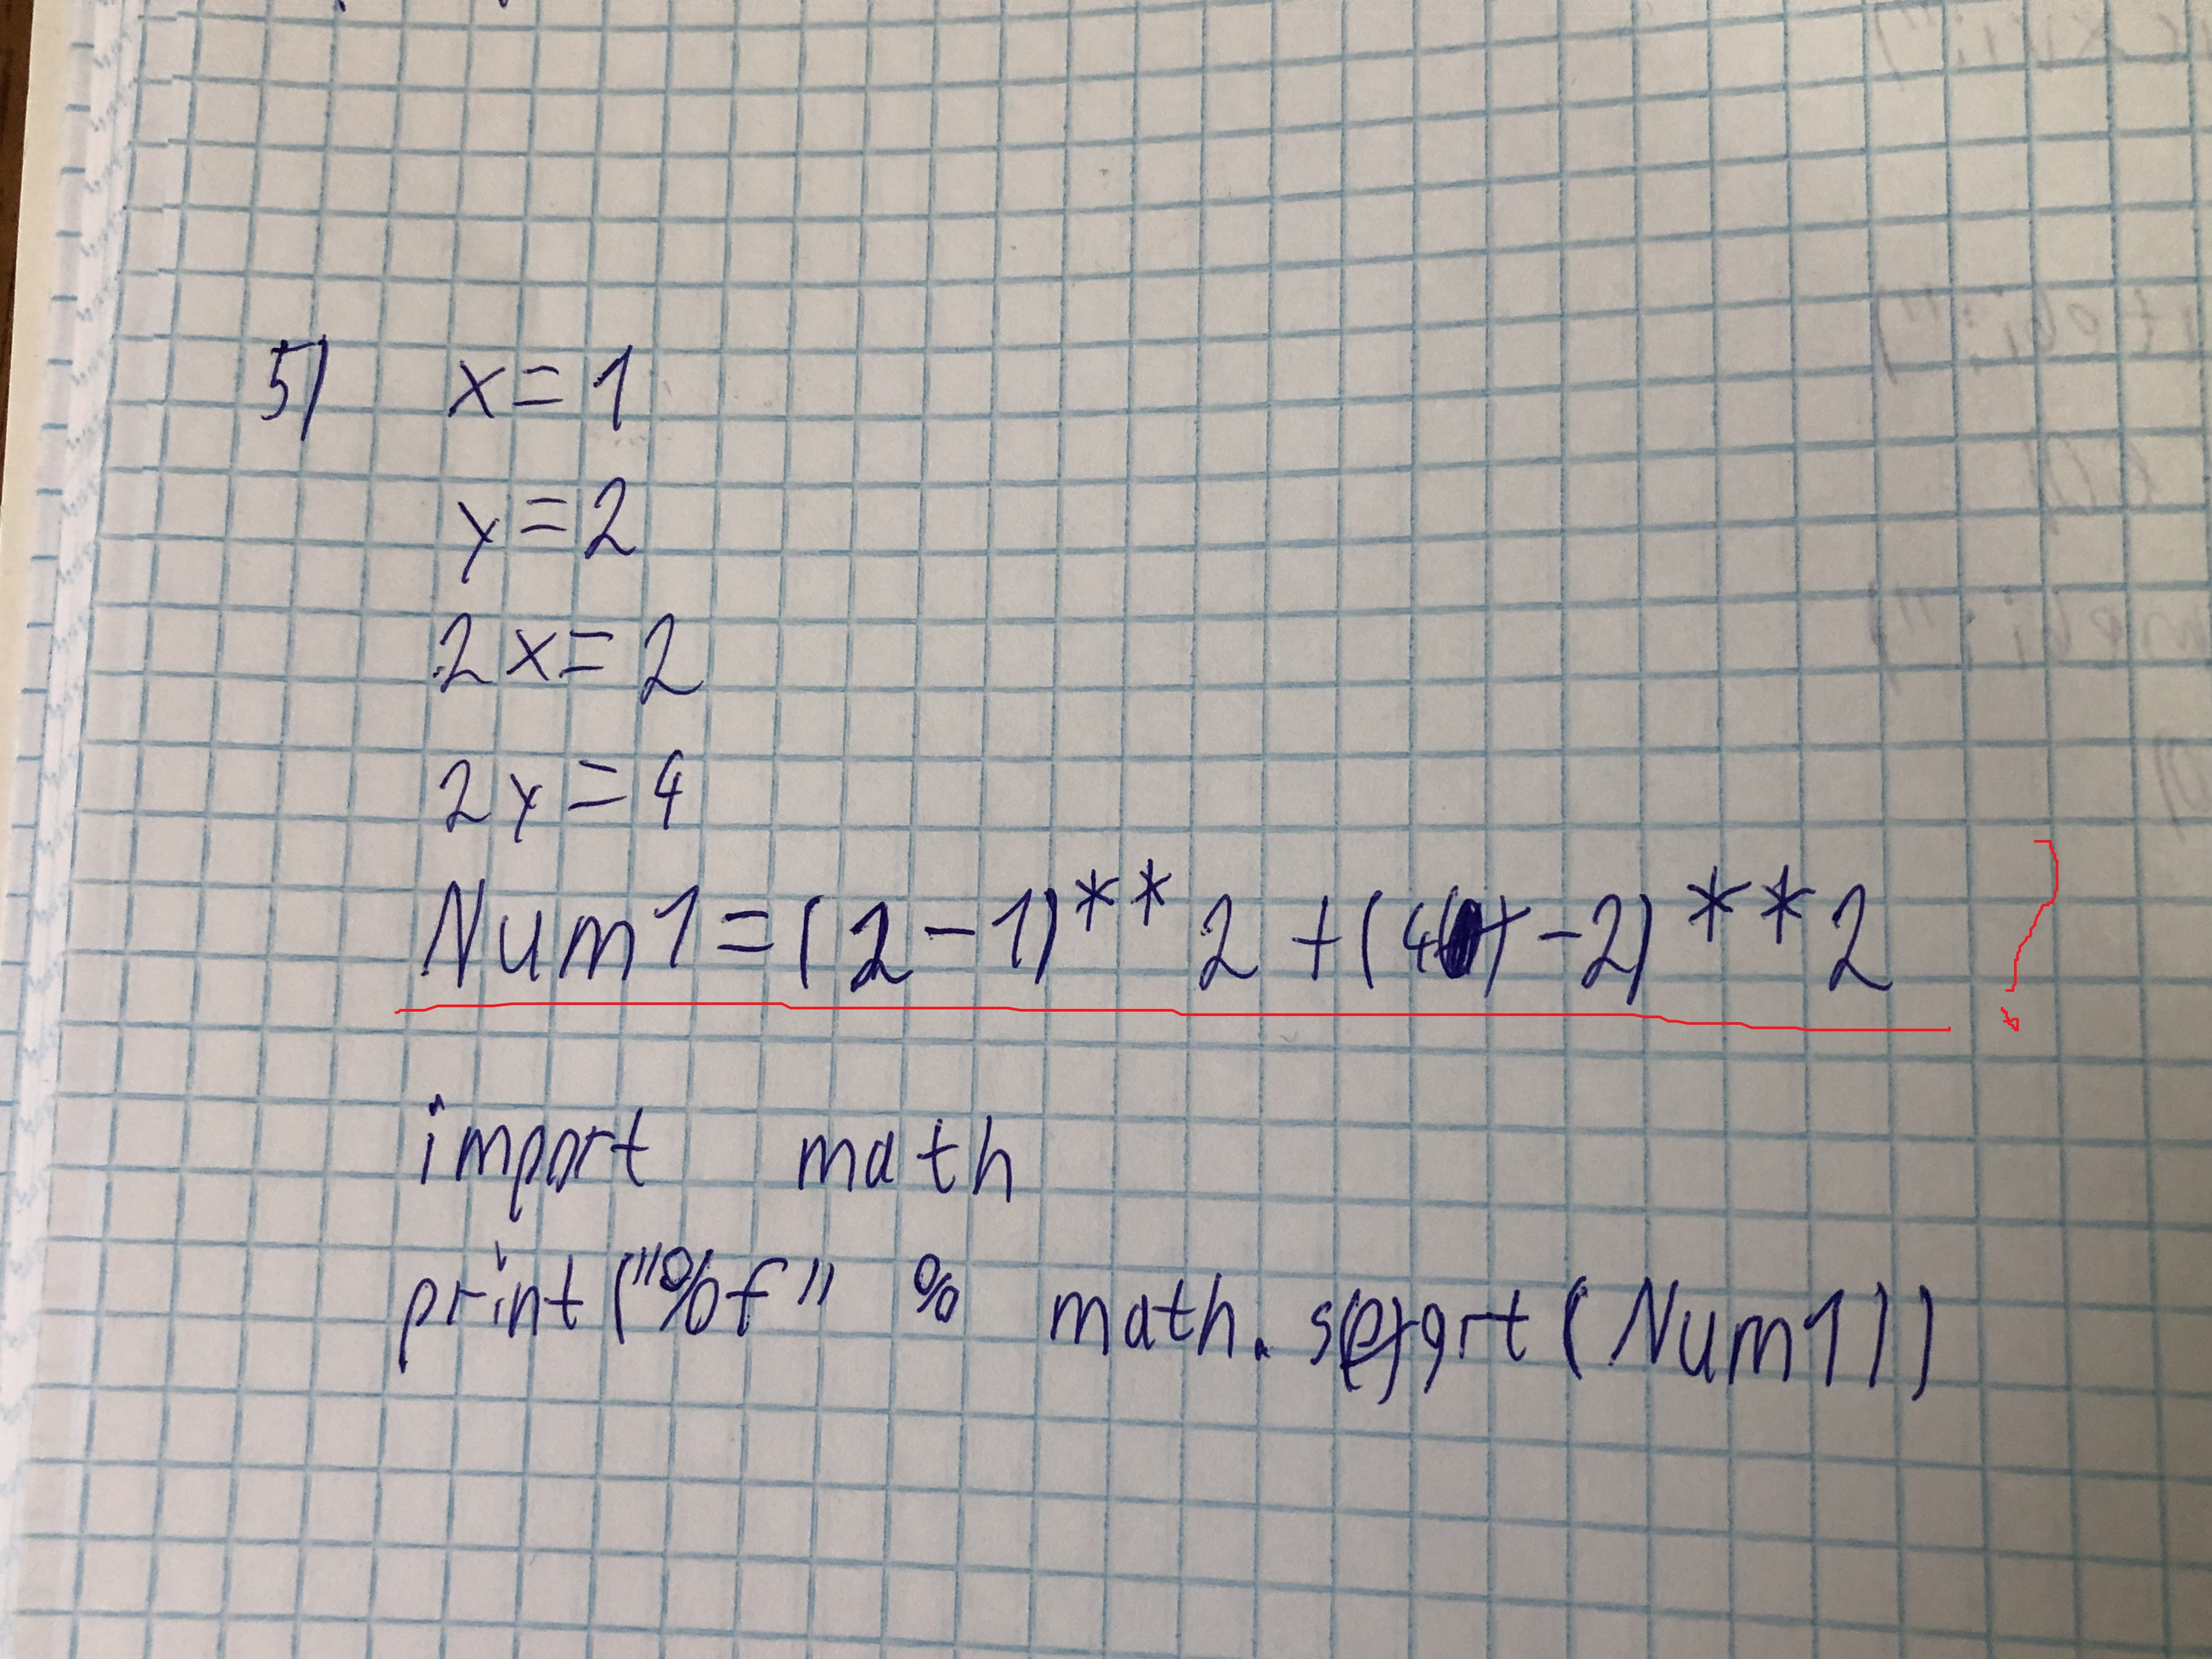 5) x=1
y=2
2x=2
2y=4
Num1=(2-1)**2+(4-2)**2 ?
import math
print("%f" % math.sqrt(Num1))